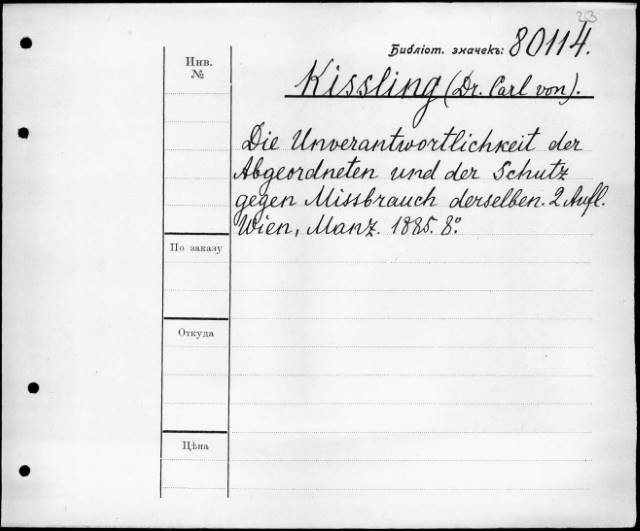 23
Библіот. значекъ: 80114.
Инв.
№
Kissling (Dr. Carl von).
Die Unverantwortlichkeit der
Abgeordneten und der Schutz
gegen Missbrauch derselben. 2 Aufl.
Wien, Manz. 1885. 8º.
По заказу
Откуда
Цѣна